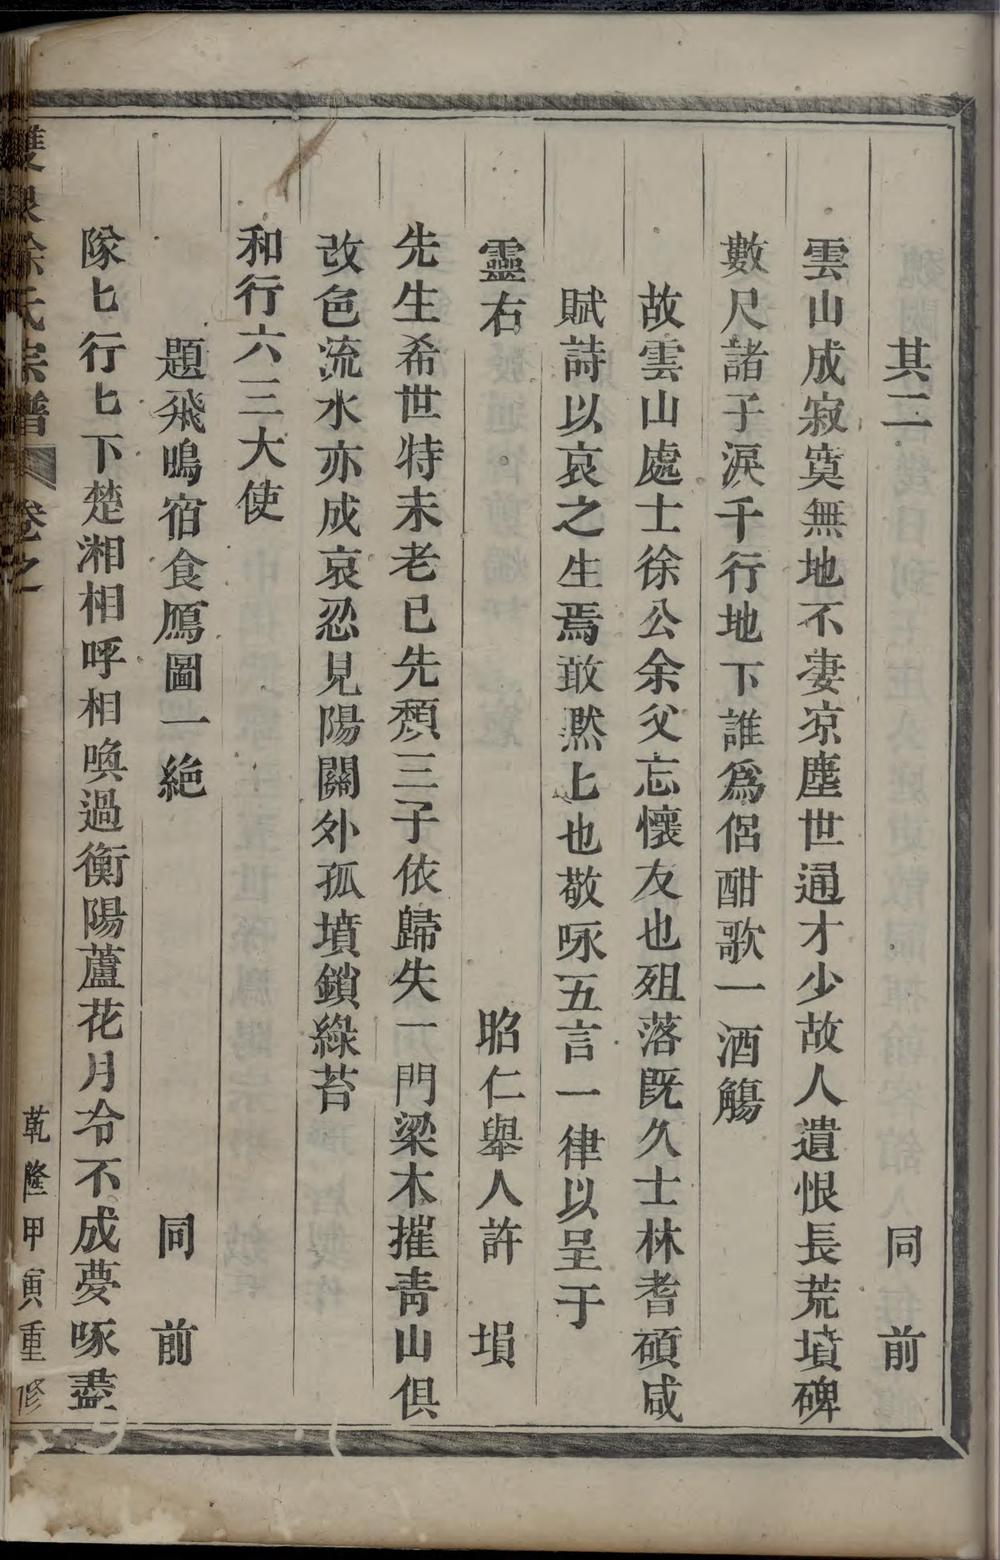 其二　同前
雲山成寂寞無地不凄凉塵世通才少故人遺恨長荒墳碑
數尺諸子淚千行地下誰為侶酣歌一酒觴
故雲山處士徐公余父忘懷友也殂落既久士林耆碩咸
賦詩以哀之生焉敢黙匕也敬咏五言一律以呈于
靈右　昭仁舉人許　塤
先生希世特未老已先頹三子依歸失一門梁木摧青山俱
改色流水亦成哀忍見陽關外孤墳鎖綠苔
和行六三大使
題飛鳴宿食鴈圖一絶　同前
隊匕行匕下楚湘相呼相喚過衡陽蘆花月冷不成夢啄盡
雙　徐氏宗譜　卷之　乾隆甲寅重修